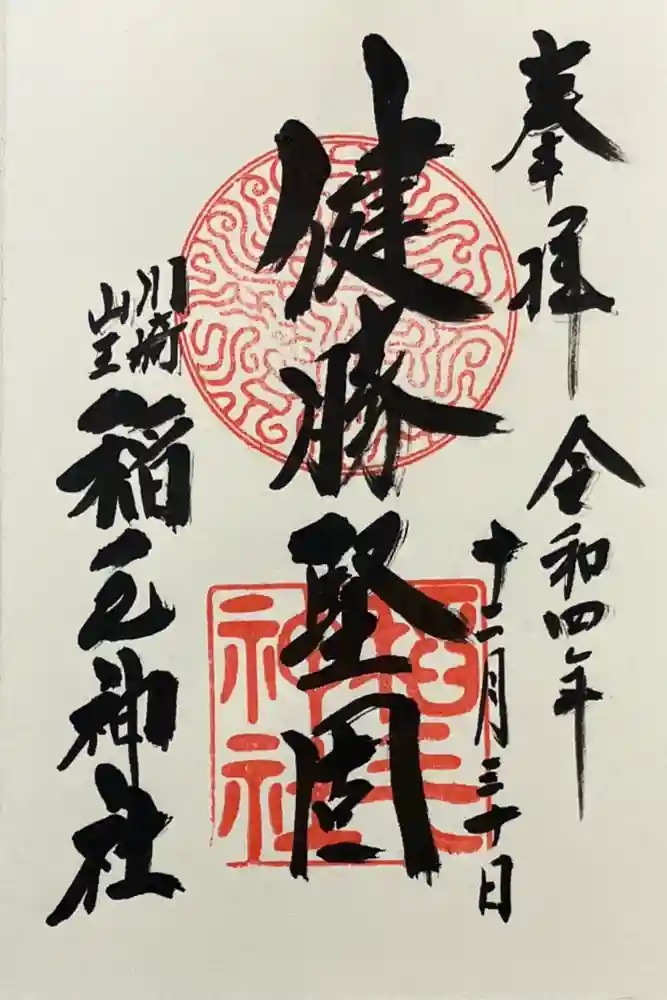 奉拝
令和四年
十二月三十日
健勝堅固
川崎
山王
稲毛神社
稲毛
神社